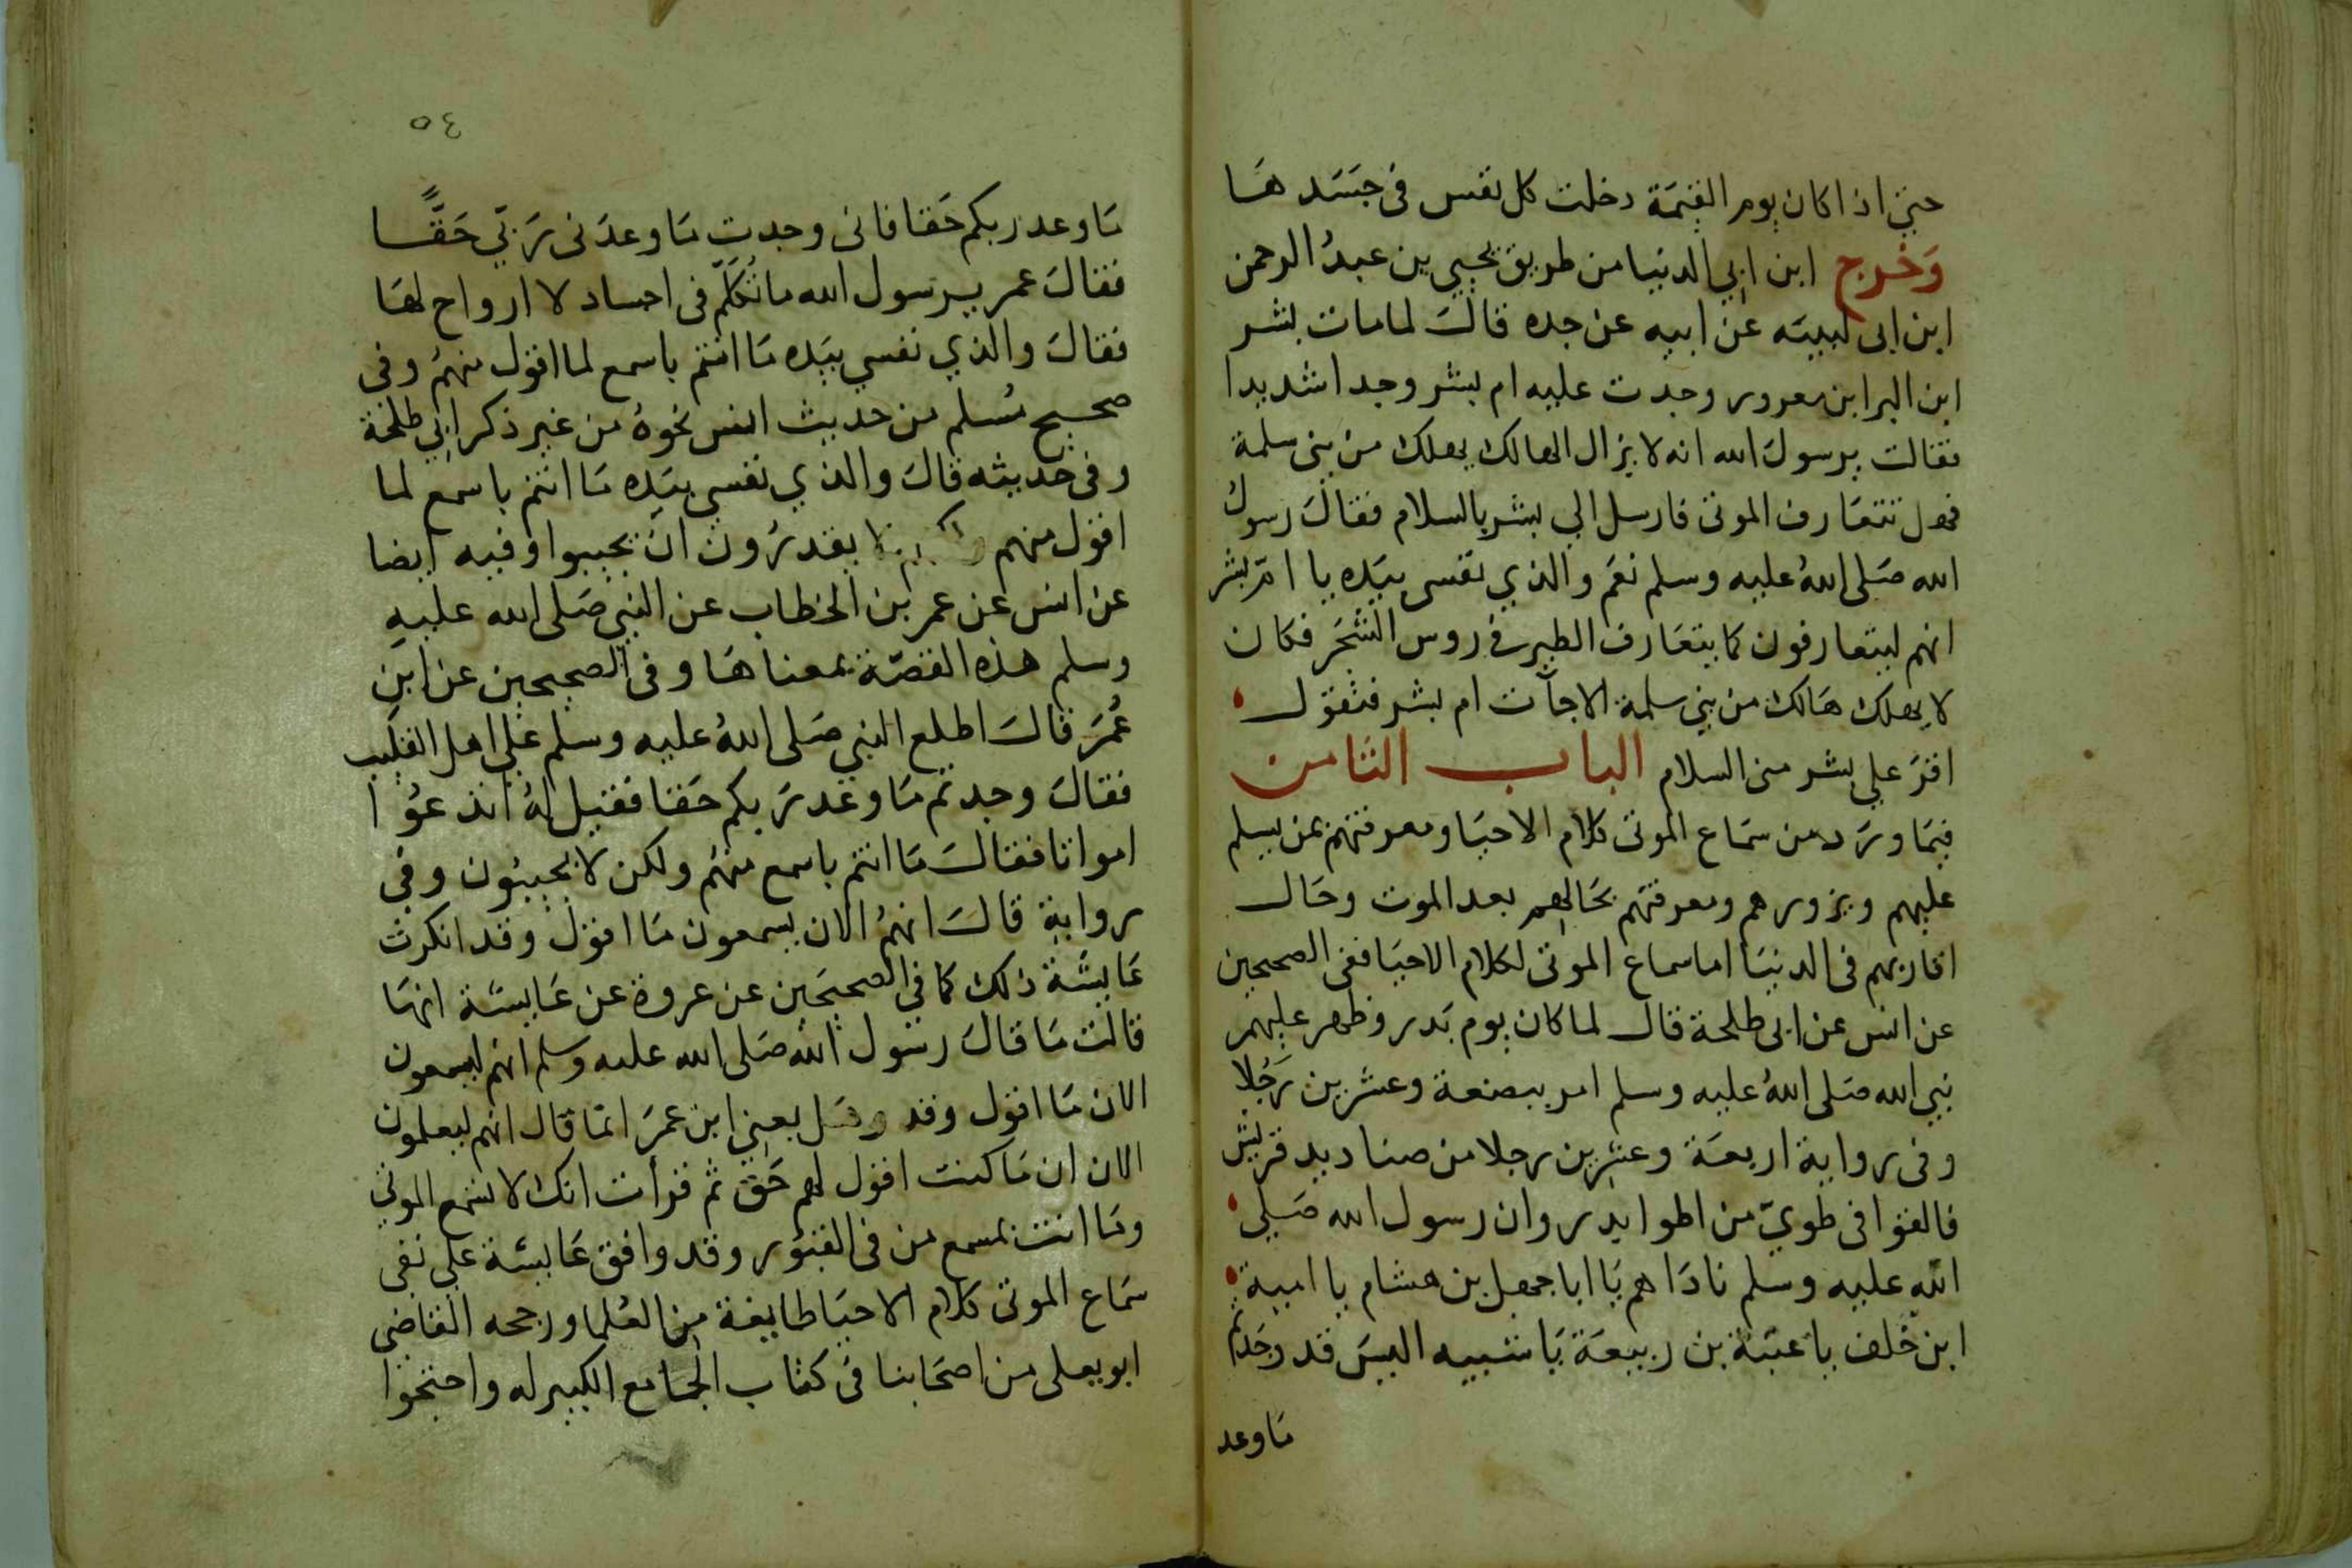 حتي اذا كان يوم القيمة دخلت كل نفس في جسدها
وخرج ابن ابي الدنيا من طريق يحيي بن عبد الرحمن
ابن ابي لبيبه عن ابيه عن جده قال لما مات بشر
ابن البرا بن معرور وجدت عليه ام بشر وجدا شديدا
فقالت يرسول الله انه لا يزال الهالك يهلك من بني سلمة
فهل تتعارف الموتي فارسل الي بشر بالسلام فقال رسول
الله صلي الله عليه وسلم نعم والذي نفسي بيده يا ام بشر
انهم ليتعارفون كما يتعارف الطير في روس الشجر فكان
لا يهلك هالك من بني سلمة الا جآت ام بشر فتقول
اقر علي بشر مني السلام الباب الثامن
فيما ورد من سماع الموتي كلام الاحيا ومعرفتهم بمن يسلم
عليهم ويزورهم ومعرفتهم بحالهم بعد الموت وحال
اقاربهم في الدنيا اما سماع الموتي لكلام الاحيا ففي الصحيحين
عن انس عن ابي طلحة قال لما كان يوم بدر وظهر عليهم
نبي الله صلي الله عليه وسلم امر ببضعة وعشرين رجلا
وفي رواية اربعة وعشرين رجلا من صناديد قريش
فالقوا في طوي من اطوا بدر وان رسول الله صلي
الله عليه وسلم ناداهم يا ابا جهل بن هشام يا امية
ابن خلف يا عتبة بن ربيعة يا شيبه اليس قد وجدتم
ما وعد
٥٤
ما وعد ربكم حقا فاني وجدت ما وعدني ربي حقا
فقال عمر يرسول الله ما تكلم في اجساد لا ارواح لها
فقال والذي نفسي بيده ما انتم باسمع لما اقول منهم وفي
صحيح مسلم من حديث انس نحوه من غير ذكر ابي طلحة
وفي حديثه قال والذي نفسي بيده ما انتم باسمع لما
اقول منهم ولكنهم لا يقدرون ان يجيبوا وفيه ايضا
عن انس عن عمر بن الخطاب عن النبي صلي الله عليه
وسلم هذه القصة بمعناها وفي الصحيحين عن ابن
عمر قال اطلع النبي صلي الله عليه وسلم علي اهل القليب
فقال وجدتم ما وعد ربكم حقا فقيل له اتدعوا
امواتا فقال ما انتم باسمع منهم ولكن لا يجيبون وفي
رواية قال انهم الان يسمعون ما اقول وقد انكرت
عايشة ذلك كما في الصحيحين عن عروة عن عايشة انها
قالت ما قال رسول الله صلي الله عليه وسلم انهم ليسمعون
الان ما اقول وقد وهل يعني ابن عمر انما قال انهم ليعلمون
الان ان ما كنت اقول لهم حق ثم قرات انك لا تسمع الموتي
وما انت بمسمع من في القبور وقد وافق عايشة علي نفي
سماع الموتي كلام الاحيا طايفة من العلما ورجحه القاضي
ابو يعلي من اصحابنا في كتاب الجامع الكبير له واحتجوا